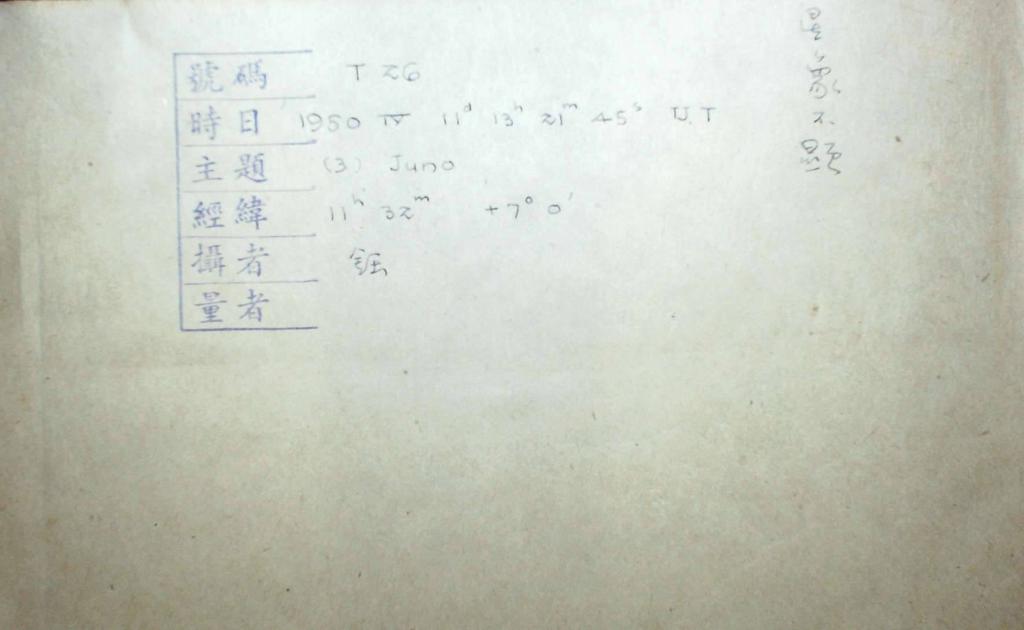 號碼 T 26
時日 1950 IV 11ᵈ 13ʰ 21ᵐ 45ˢ U.T
主題 (3) Juno
經緯 11ʰ 32ᵐ +7° 0′
攝者 鈺
量者
星象不顯